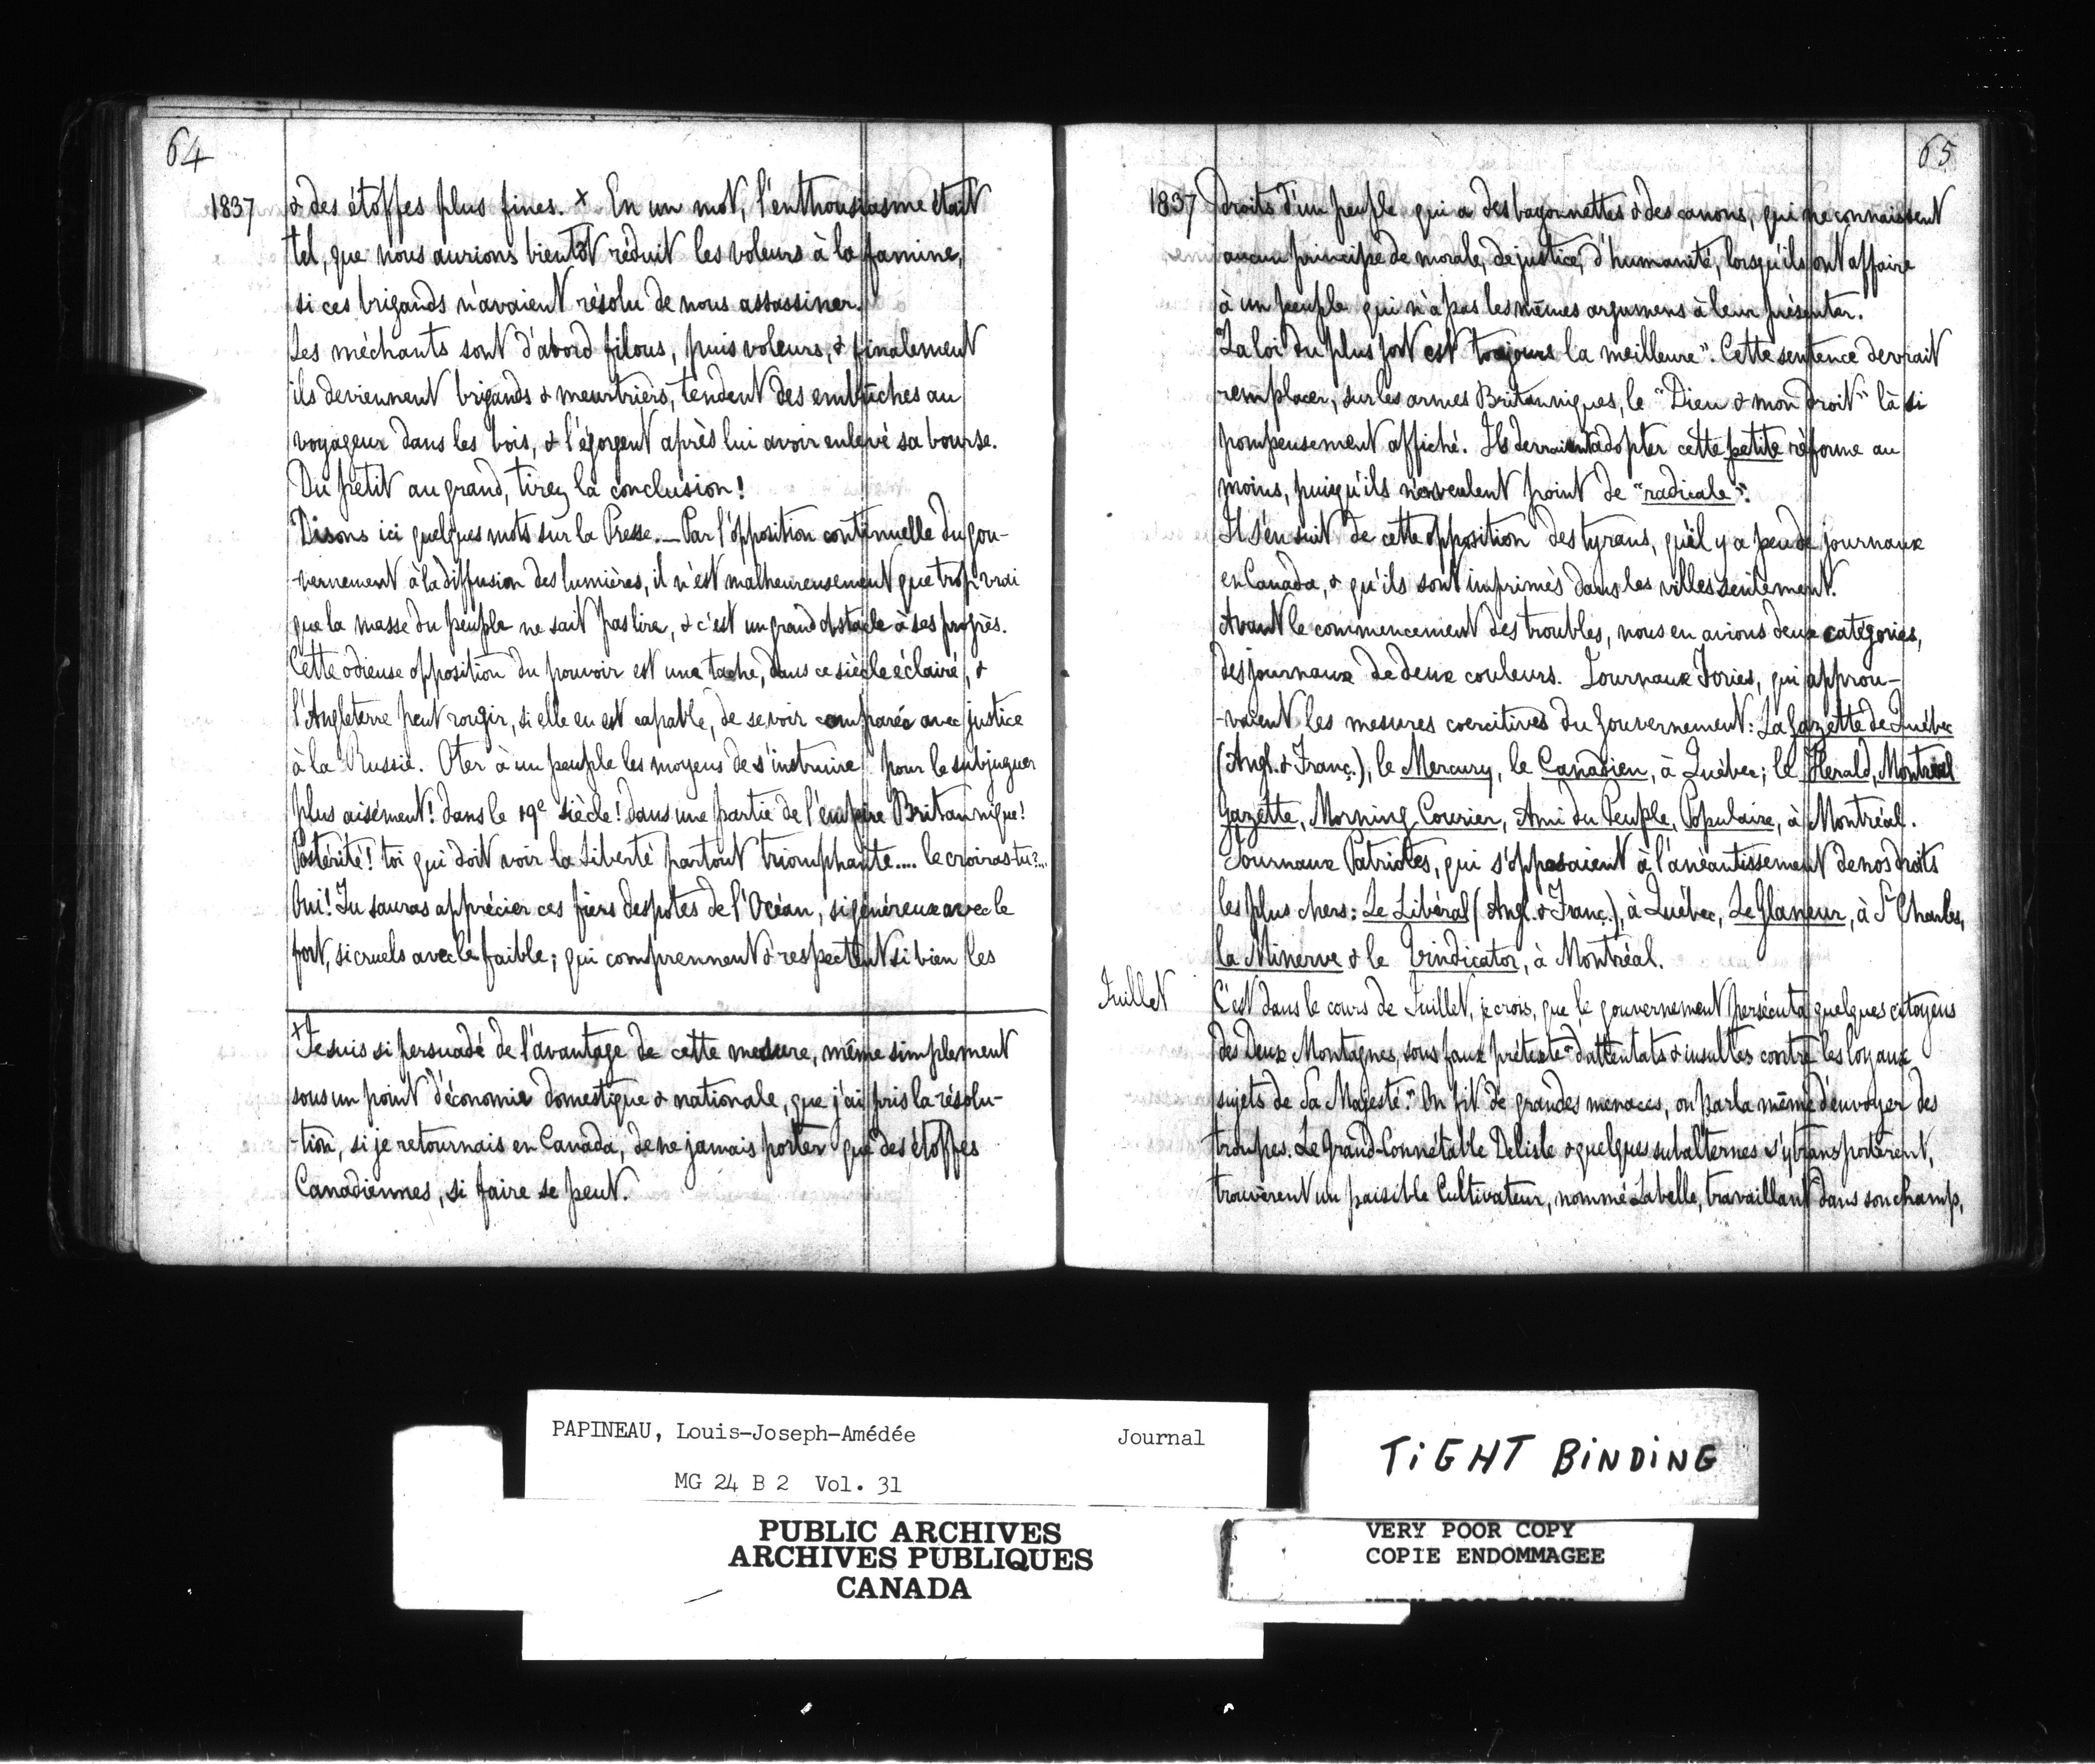 64
1837 & des étoffes plus fines. × En un mot, l'enthousiasme était
tel, que nous aurions bientôt réduit les voleurs à la famine,
si ces brigands n'avaient résolu de nous assassiner.
Les méchants sont d'abord filous, puis voleurs, & finalement
ils deviennent brigands & meurtriers, tendent des embûches au
voyageur dans les bois, & l'égorgent après lui avoir enlevé sa bourse.
Du petit au grand, tirez la conclusion!
Disons ici quelques mots sur la Presse.— Par l'opposition continuelle du gou-
-vernement à la diffusion des lumières, il n'est malheureusement que trop vrai
que la masse du peuple ne sait pas lire, & c'est un grand obstacle à ses progrès.
Cette odieuse opposition du pouvoir est une tache, dans ce siècle éclairé, &
l'Angleterre peut rougir, si elle en est capable, de se voir comparée avec justice
à la Russie. Oter à un peuple les moyens de s'instruire pour le subjuguer
plus aisément! dans le 19e siècle! dans une partie de l'empire Britannique!
Postérité! toi qui doit voir la Liberté partout triomphante.... le croiras-tu?...
Oui! Tu sauras apprécier ces fiers despotes de l'Océan, si généreux avec le
fort, si cruels avec le faible; qui comprennent & respectent si bien les
× Je suis si persuadé de l'avantage de cette mesure, même simplement
sous un point d'économie domestique & nationale, que j'ai pris la résolu-
-tion, si je retournais en Canada, de ne jamais porter que des étoffes
Canadiennes, si faire se peut.
65
1837 droits d'un peuple qui a des bayonnettes & des canons, qui ne connaissent
aucun principe de morale, de justice, d'humanité, lorsqu'ils ont affaire
à un peuple qui n'a pas les mêmes argumens à leur présenter.
"La loi du plus fort est toujours la meilleure". Cette sentence devrait
remplacer, sur les armes Britanniques, le "Dieu & mon droit" là si
pompeusement affiché. Ils devraient adopter cette petite réforme au
moins, puisqu'ils n'en veulent point de "radicale".
Il s'en suit de cette opposition des tyrans, qu'il y a peu de journaux
en Canada, & qu'ils sont imprimés dans les villes seulement.
Avant le commencement des troubles, nous en avions deux catégories,
des journaux de deux couleurs. Journaux Tories, qui approu-
-vaient les mesures coercitives du Gouvernement: La Gazette de Québec
(Angl. & Franç.), le Mercury, le Canadien, à Québec; le Herald, Montreal
Gazette, Morning Courier, Ami du Peuple, Populaire, à Montréal.
Journaux Patriotes, qui s'opposaient à l'anéantissement de nos droits
les plus chers: Le Libéral (Angl. & Franç.), à Québec, Le Glaneur, à St Charles,
la Minerve & le Vindicator, à Montréal.
Juillet C'est dans le cours de Juillet, je crois, que le gouvernement persécuta quelques citoyens
des Deux Montagnes, sous faux prétexte "d'attentats & insultes contre les loyaux
sujets de Sa Majesté." On fit de grandes menaces, on parla même d'envoyer des
troupes. Le Grand-Connétable Delisle & quelques subalternes s'y transportèrent,
trouvèrent un paisible Cultivateur, nommé Labelle, travaillant dans son champ,
PAPINEAU, Louis-Joseph-Amédée Journal
MG 24 B 2 Vol. 31
PUBLIC ARCHIVES
ARCHIVES PUBLIQUES
CANADA
TIGHT BINDING
VERY POOR COPY
COPIE ENDOMMAGEE
VERY POOR COPY